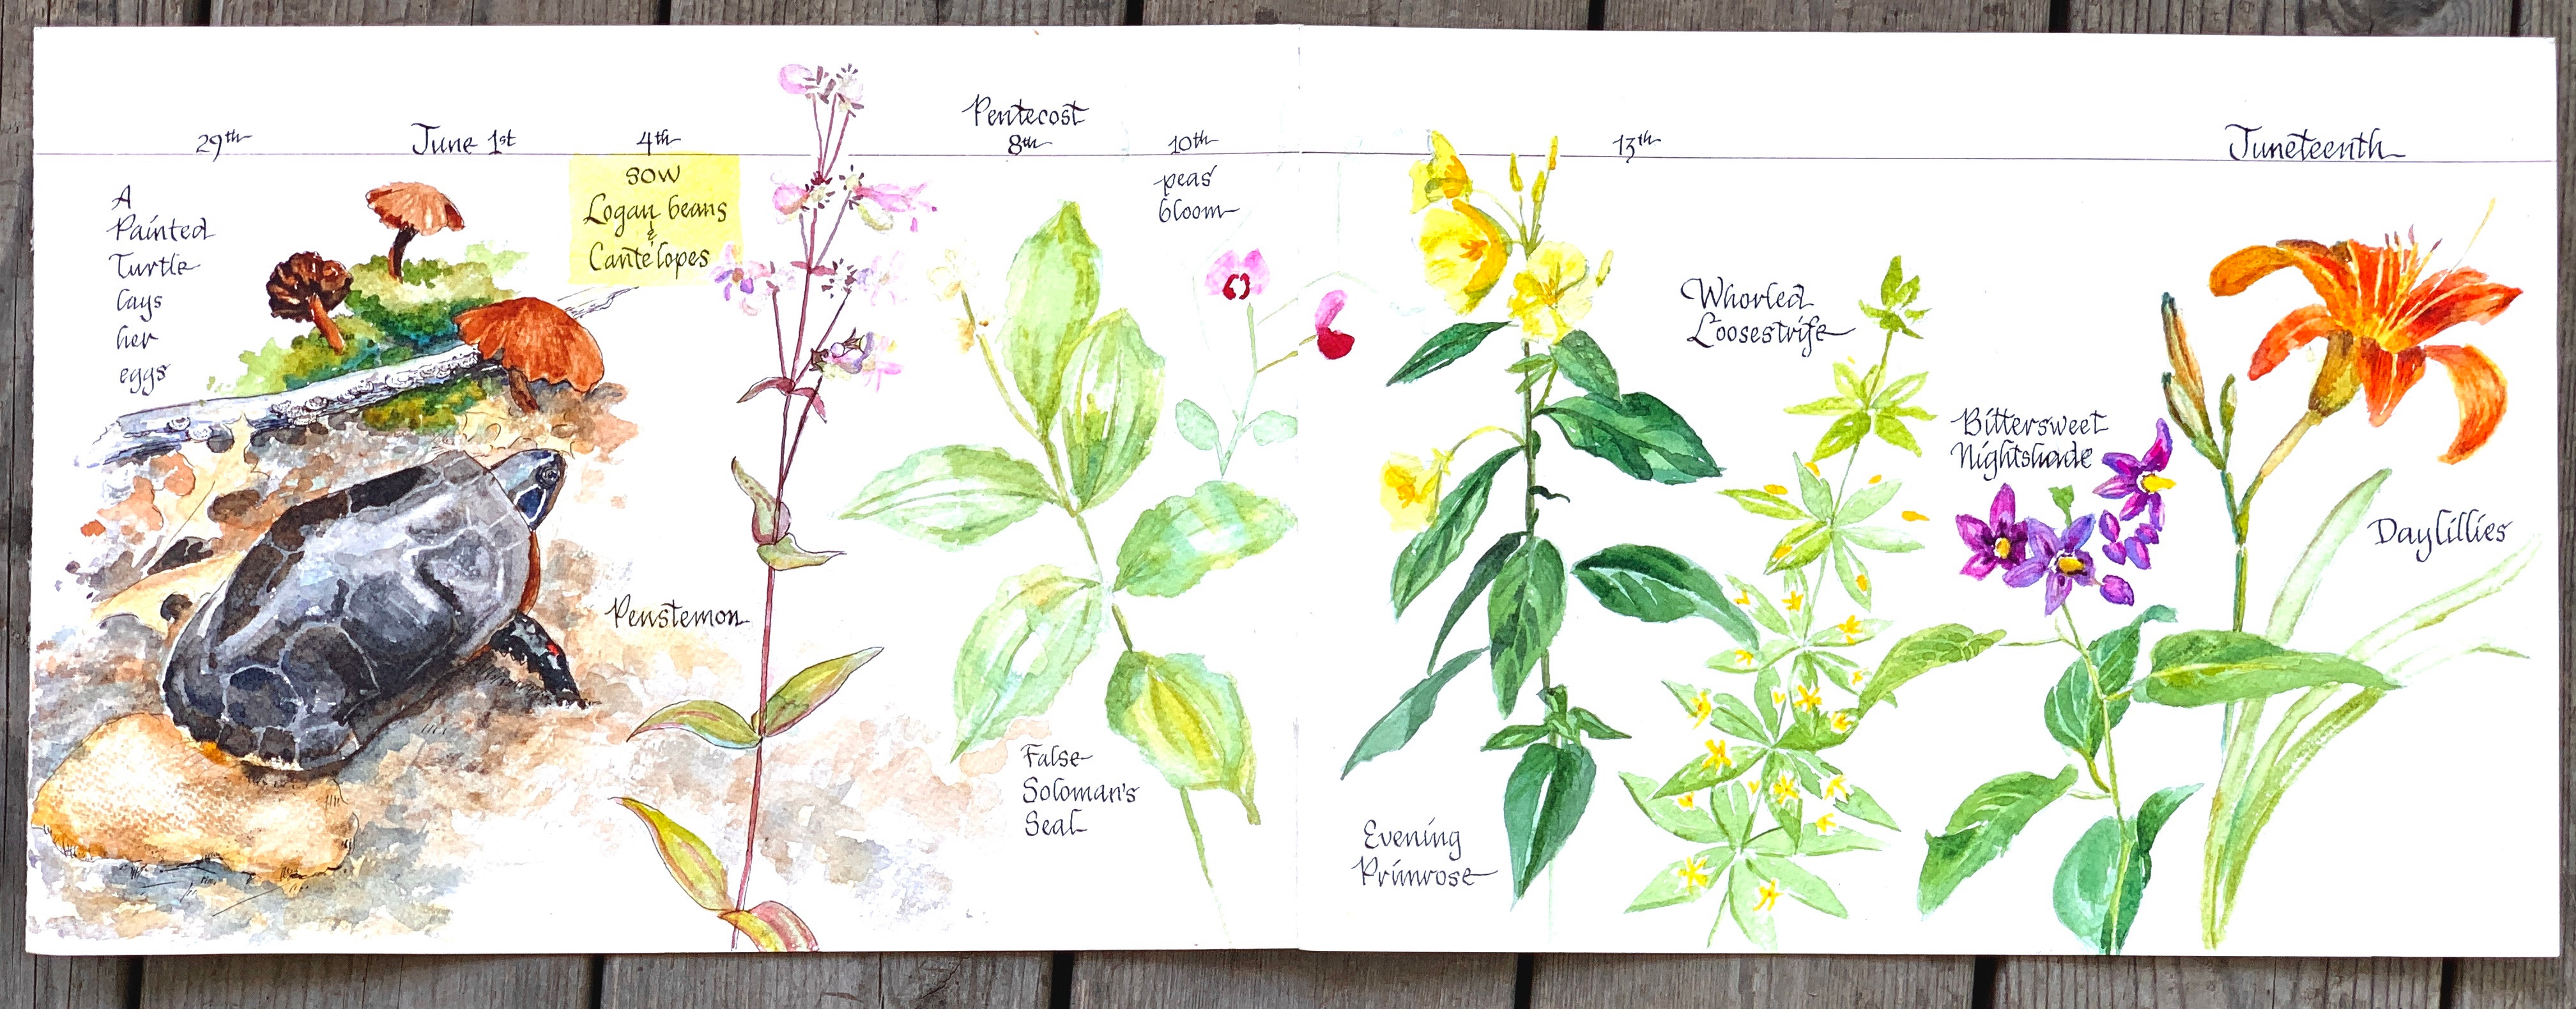 29th
June 1st
4th
Pentecost
8th
10th
13th
Juneteenth
A
Painted
Turtle
lays
her
eggs
sow
Logan beans
&
Cantelopes
peas
bloom
Penstemon
False
Soloman's
Seal
Evening
Primrose
Whorled
Loosestrife
Bittersweet
Nightshade
Daylillies